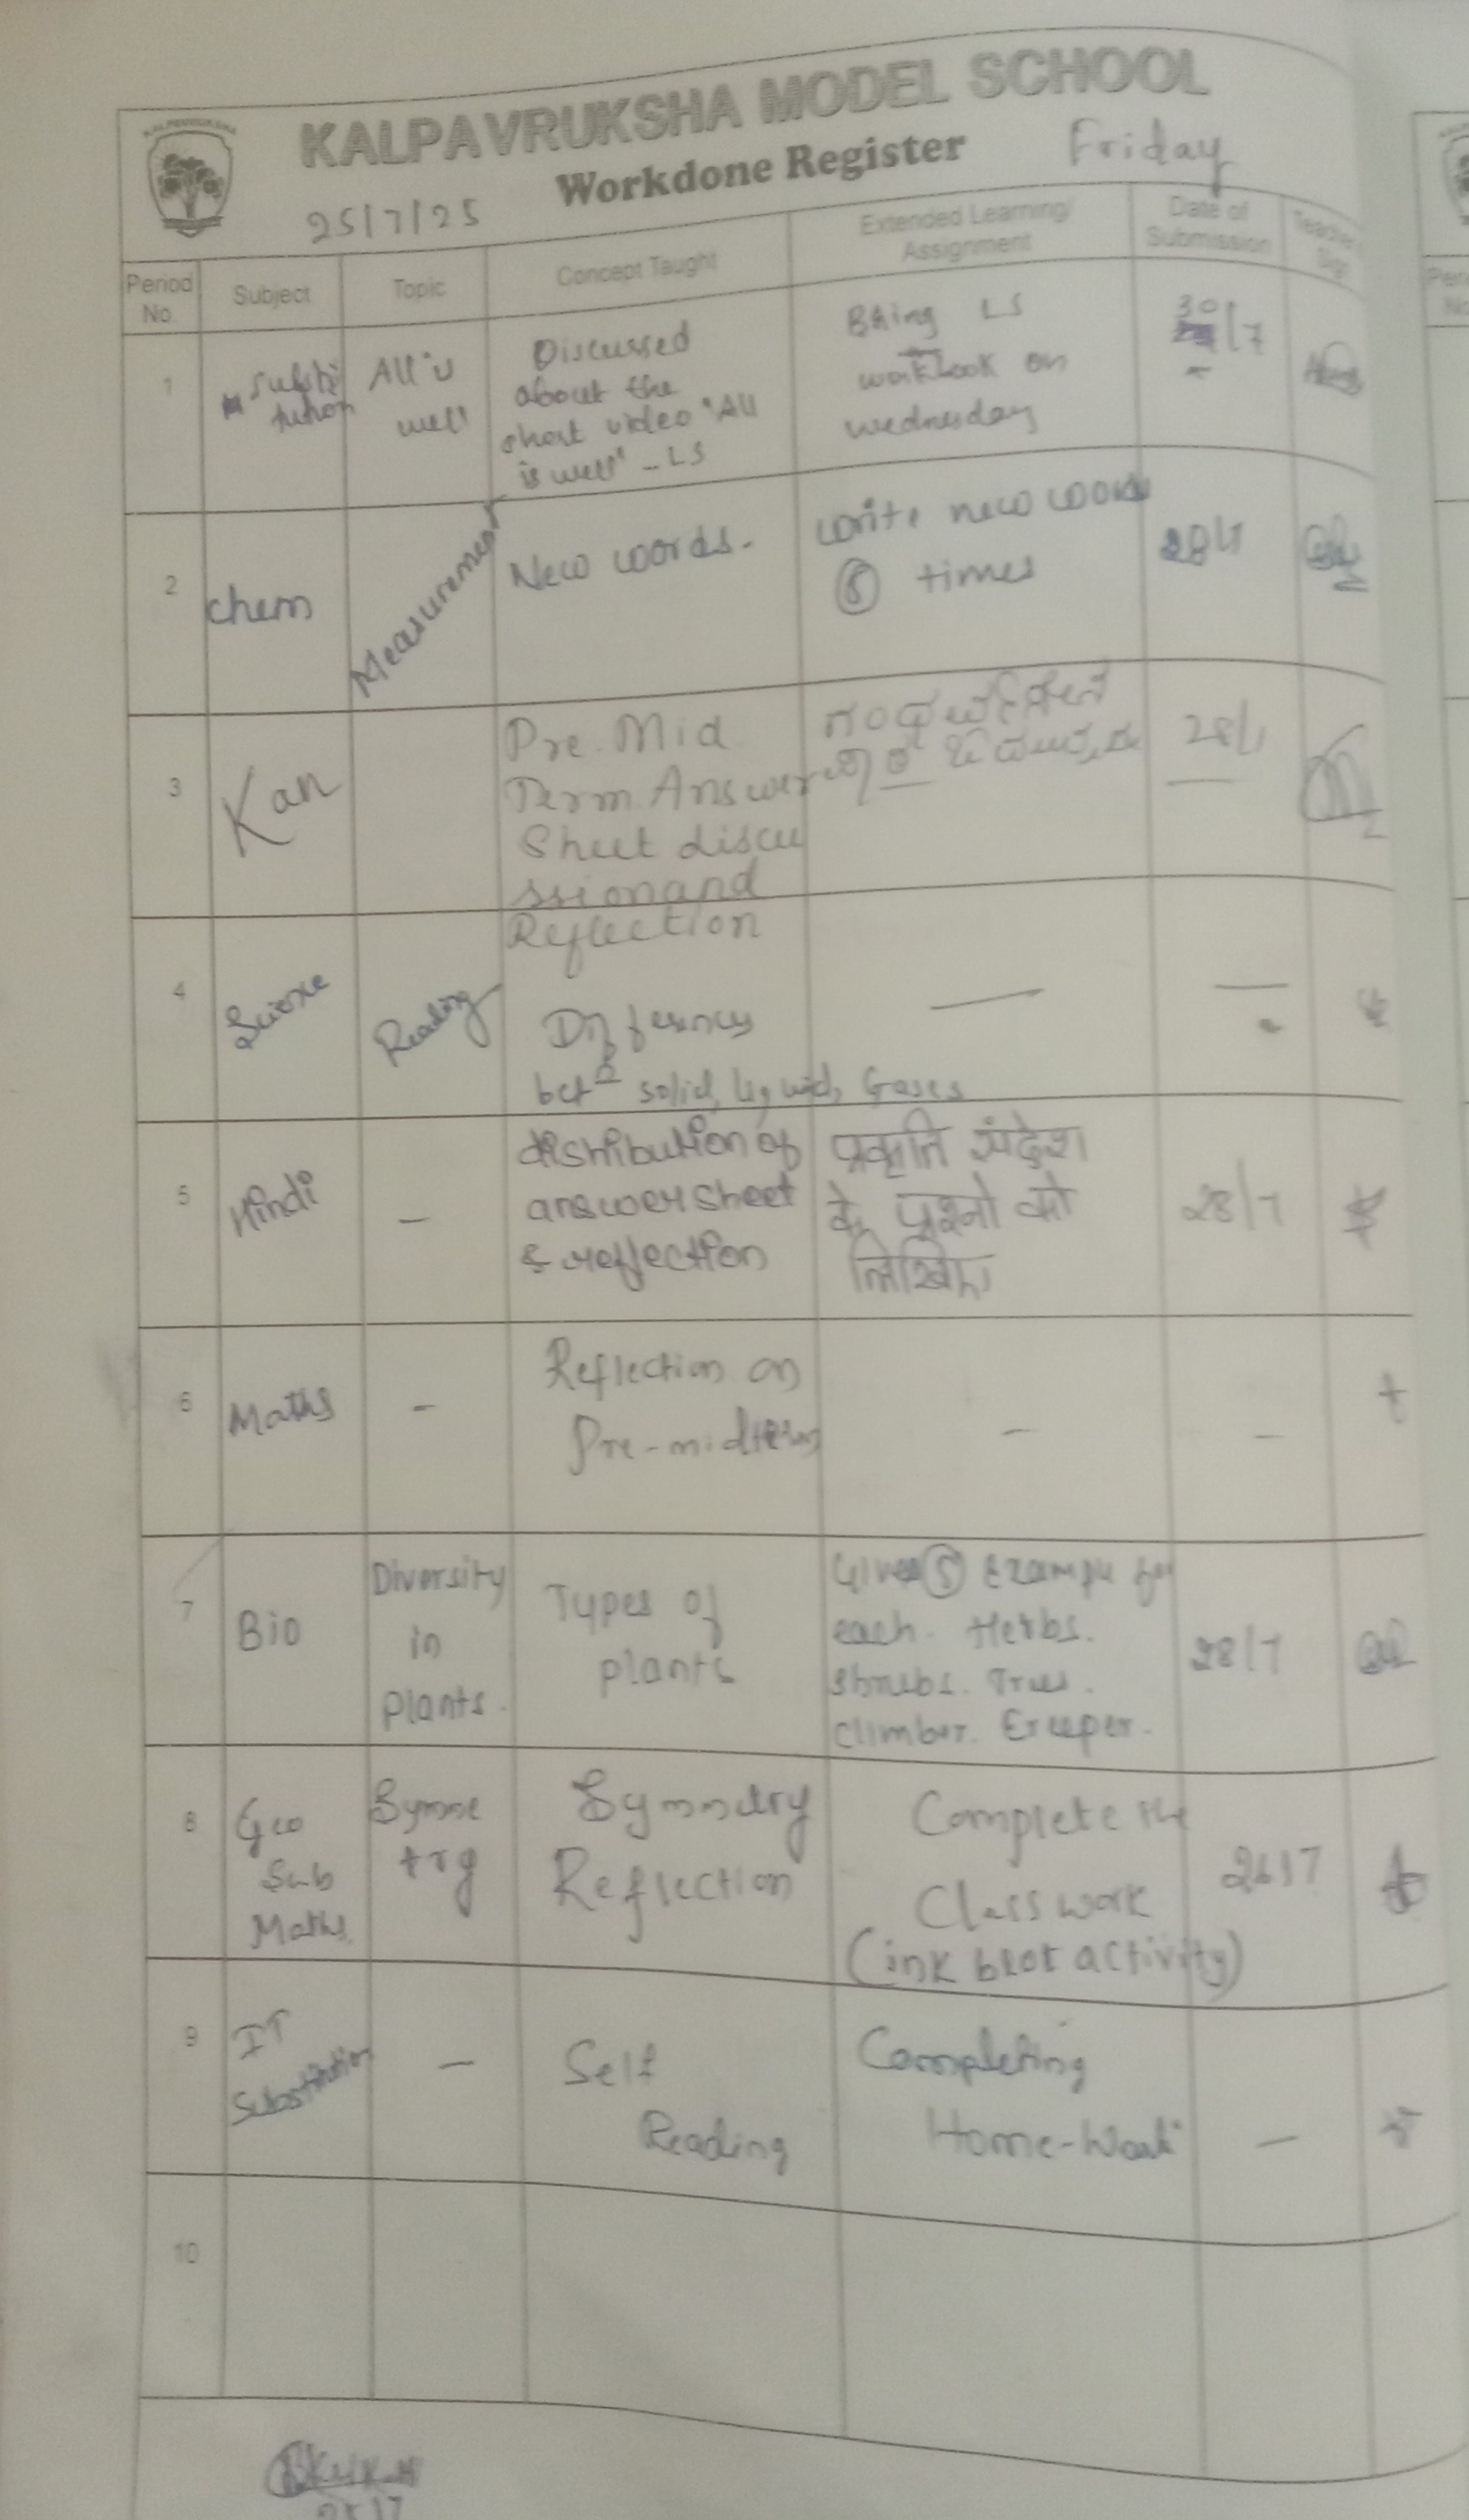 KALPAVRUKSHA
KALPAVRUKSHA MODEL SCHOOL
Workdone Register Friday
25/7/25
Period No. Subject Topic Concept Taught Extended Learning/ Assignment Date of Submission Teacher Sign
1 Substi tution All is well
Discussed
about the
short video "All
is well" - LS
Bring LS
workbook on
wednesday
30/7
2 chem Measurement New words.
write new words
⑤ times
28/7
3 Kan
Pre. Mid
Term. Answer
Sheet discu
ssion and
Reflection
28/7
4 Science Reading
Differences
betn solid, liquid, Gases
— —
5 Hindi -
distribution of
answer sheet
& reflection
प्रकृति संदेश
के प्रश्नो को
लिखिए
28/7
6 Maths -
Reflection on
Pre-midterm
- -
7 Bio
Diversity
in
plants.
Types of
plants
Give ⑤ Example for
each. Herbs.
shrubs. Trees.
climber. Creeper.
28/7
8 Geo
Sub
Maths
Symme
try
Symmetry
Reflection
Complete the
Class work
(ink blot activity)
26/7
9 IT
Substitution
-
Self
Reading
Completing
Home-Work
-
10
25/7